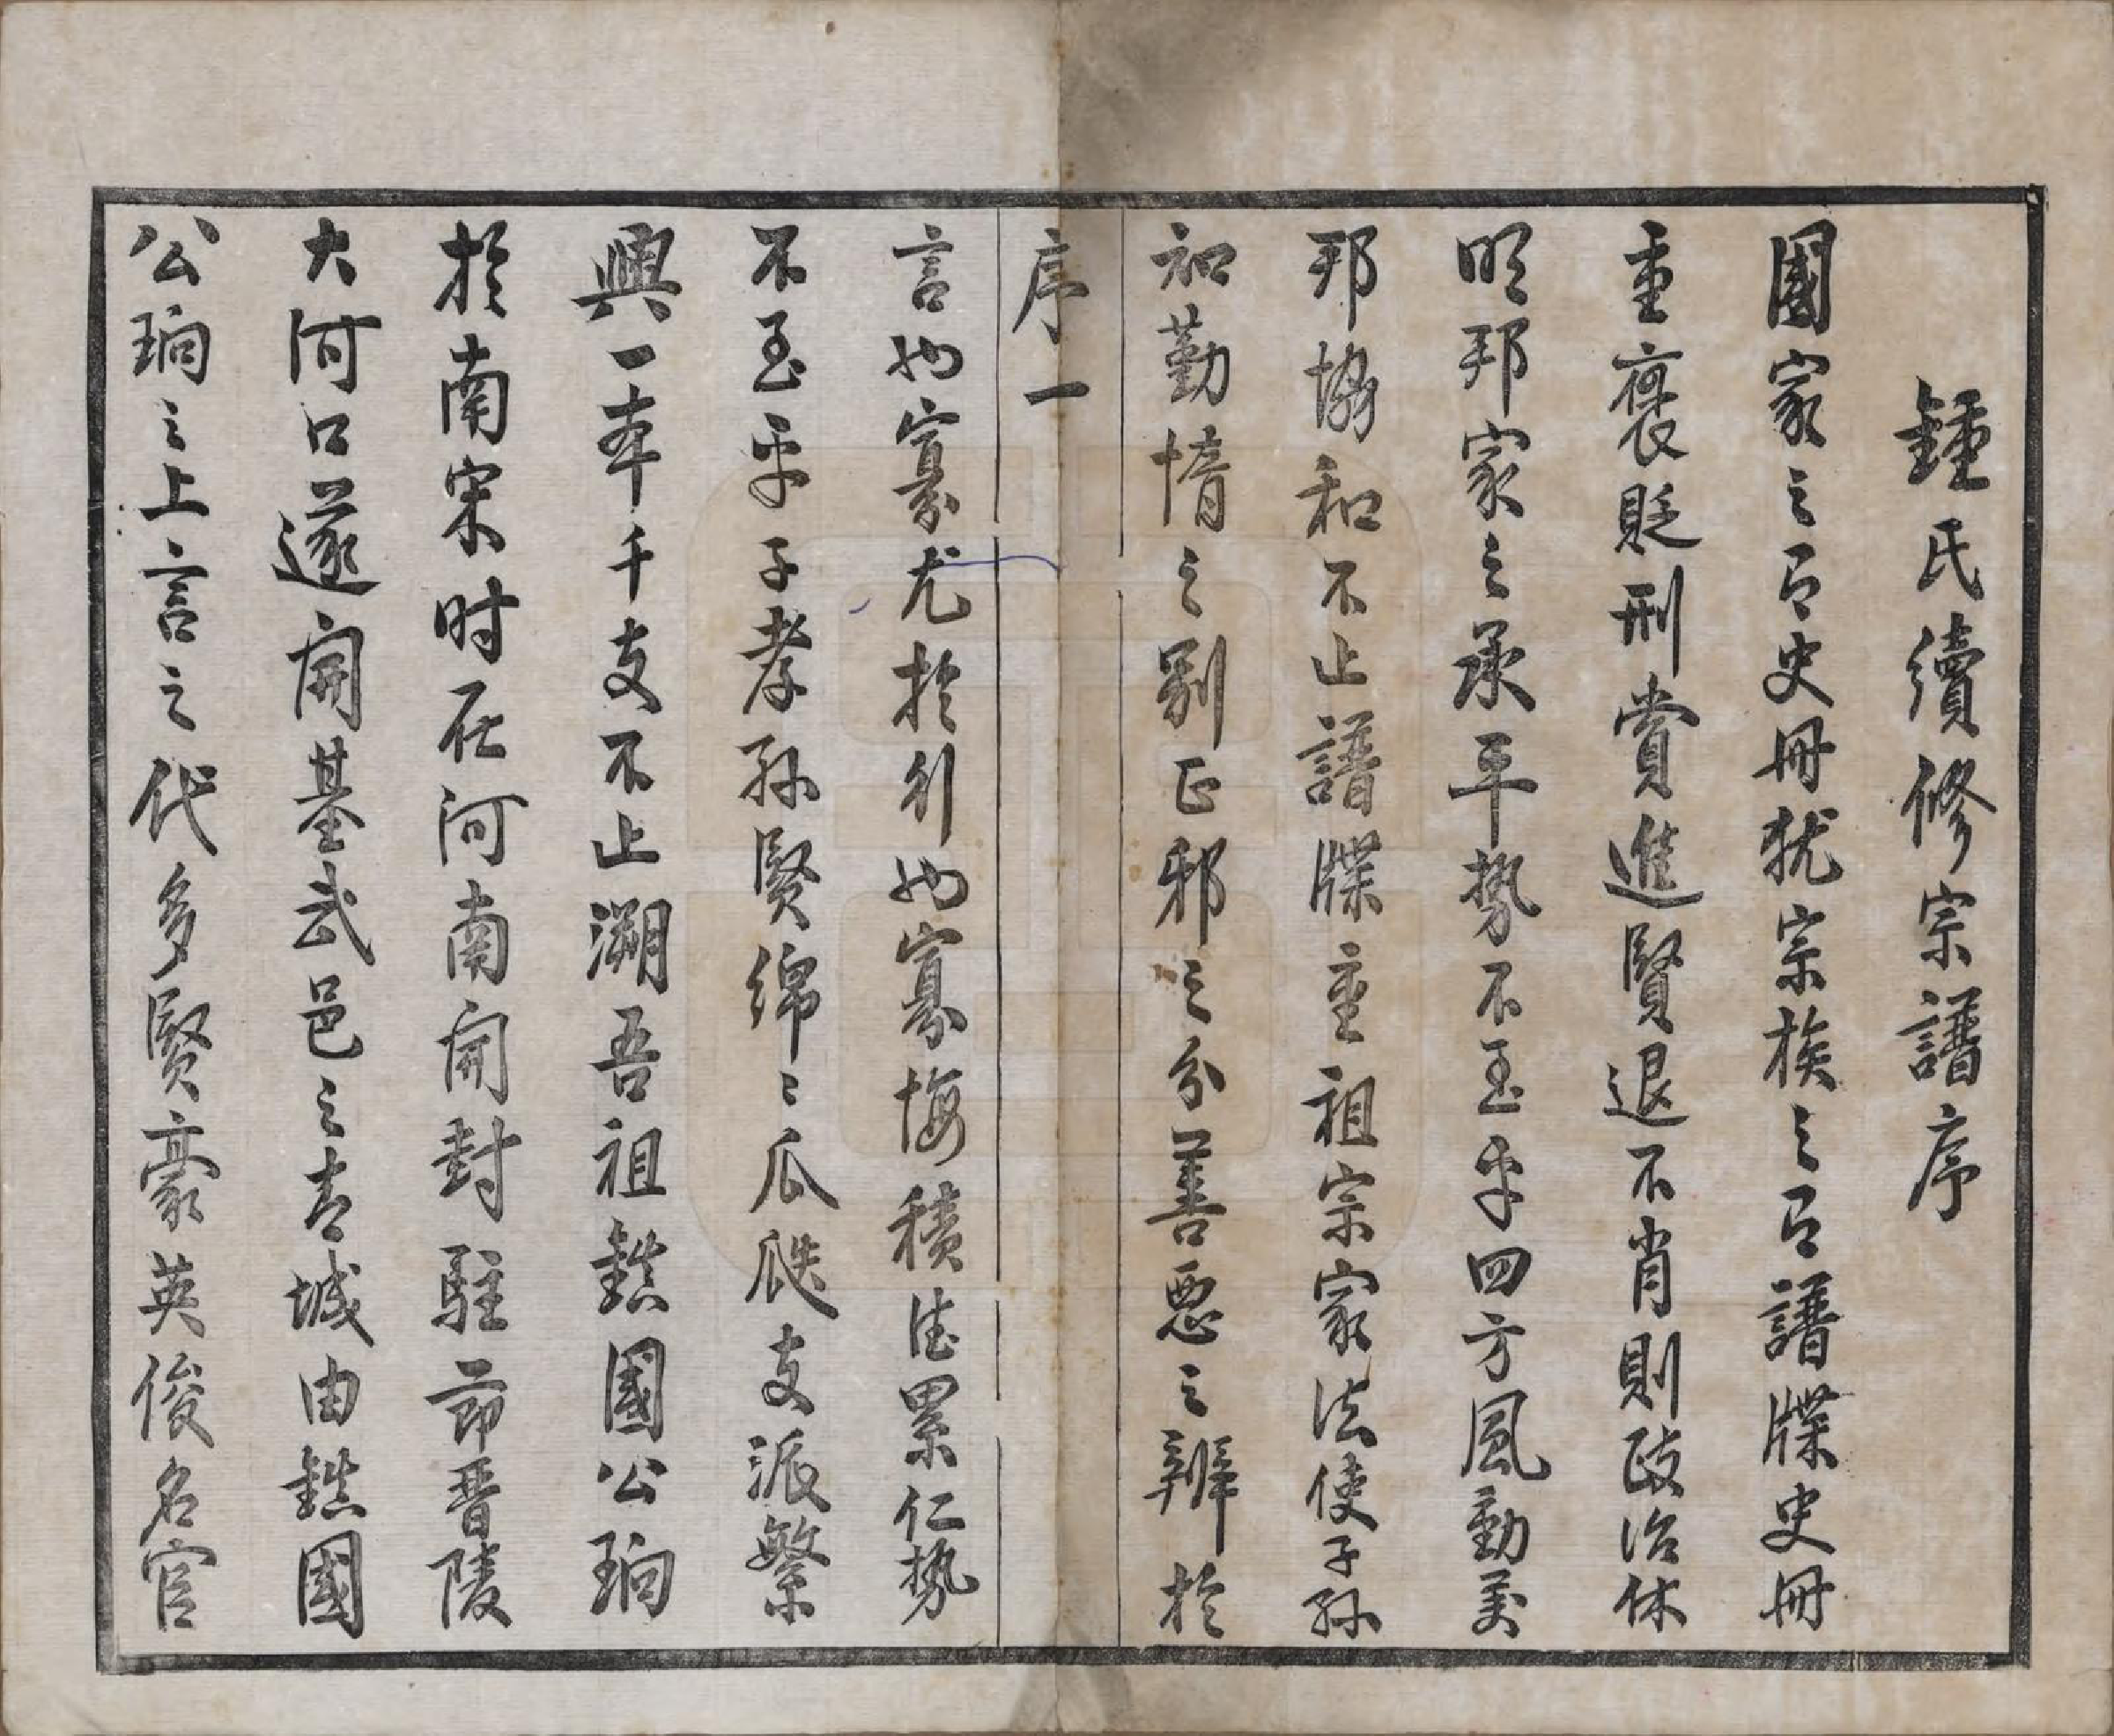 鍾氏續修宗譜序
國家之有史冊猶宗族之有譜牒史冊
重褒貶刑賞進賢退不肖則政治休
明邦家之承平勢不至乎四方風動萬
邦協和不止譜牒重祖宗家法使子孫
知勤惰之別正邪之分善惡之辨於
序一
言必寡尤於行必寡悔積德累仁勢
不至乎子孝孫賢綿〻瓜瓞支派繁
興一本千支不止溯吾祖鎮國公珦
於南宋时在河南開封駐節晉陵
大河口遂開基武邑之青城由鎮國
公珦之上言之代多賢豪英俊名宦